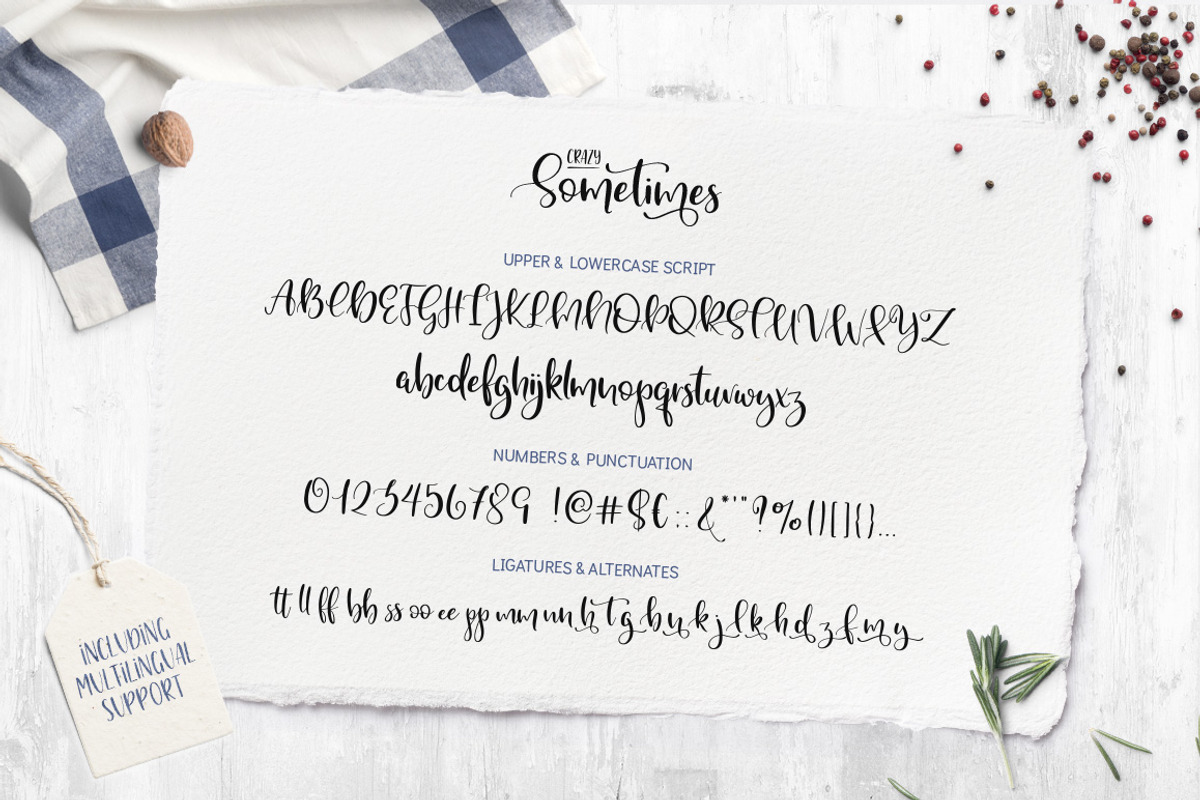 CRAZY
Sometimes
UPPER & LOWERCASE SCRIPT
ABCDEFGHIJKLMNOPQRSTUVWXYZ
abcdefghijklmnopqrstuvwxyz
NUMBERS & PUNCTUATION
0123456789 !@#$€:;&*'"?%()[]{}...
LIGATURES & ALTERNATES
tt ll ff bb ss oo ee pp mm nn h t g b y k j l k h d z f m y
INCLUDING
MULTILINGUAL
SUPPORT